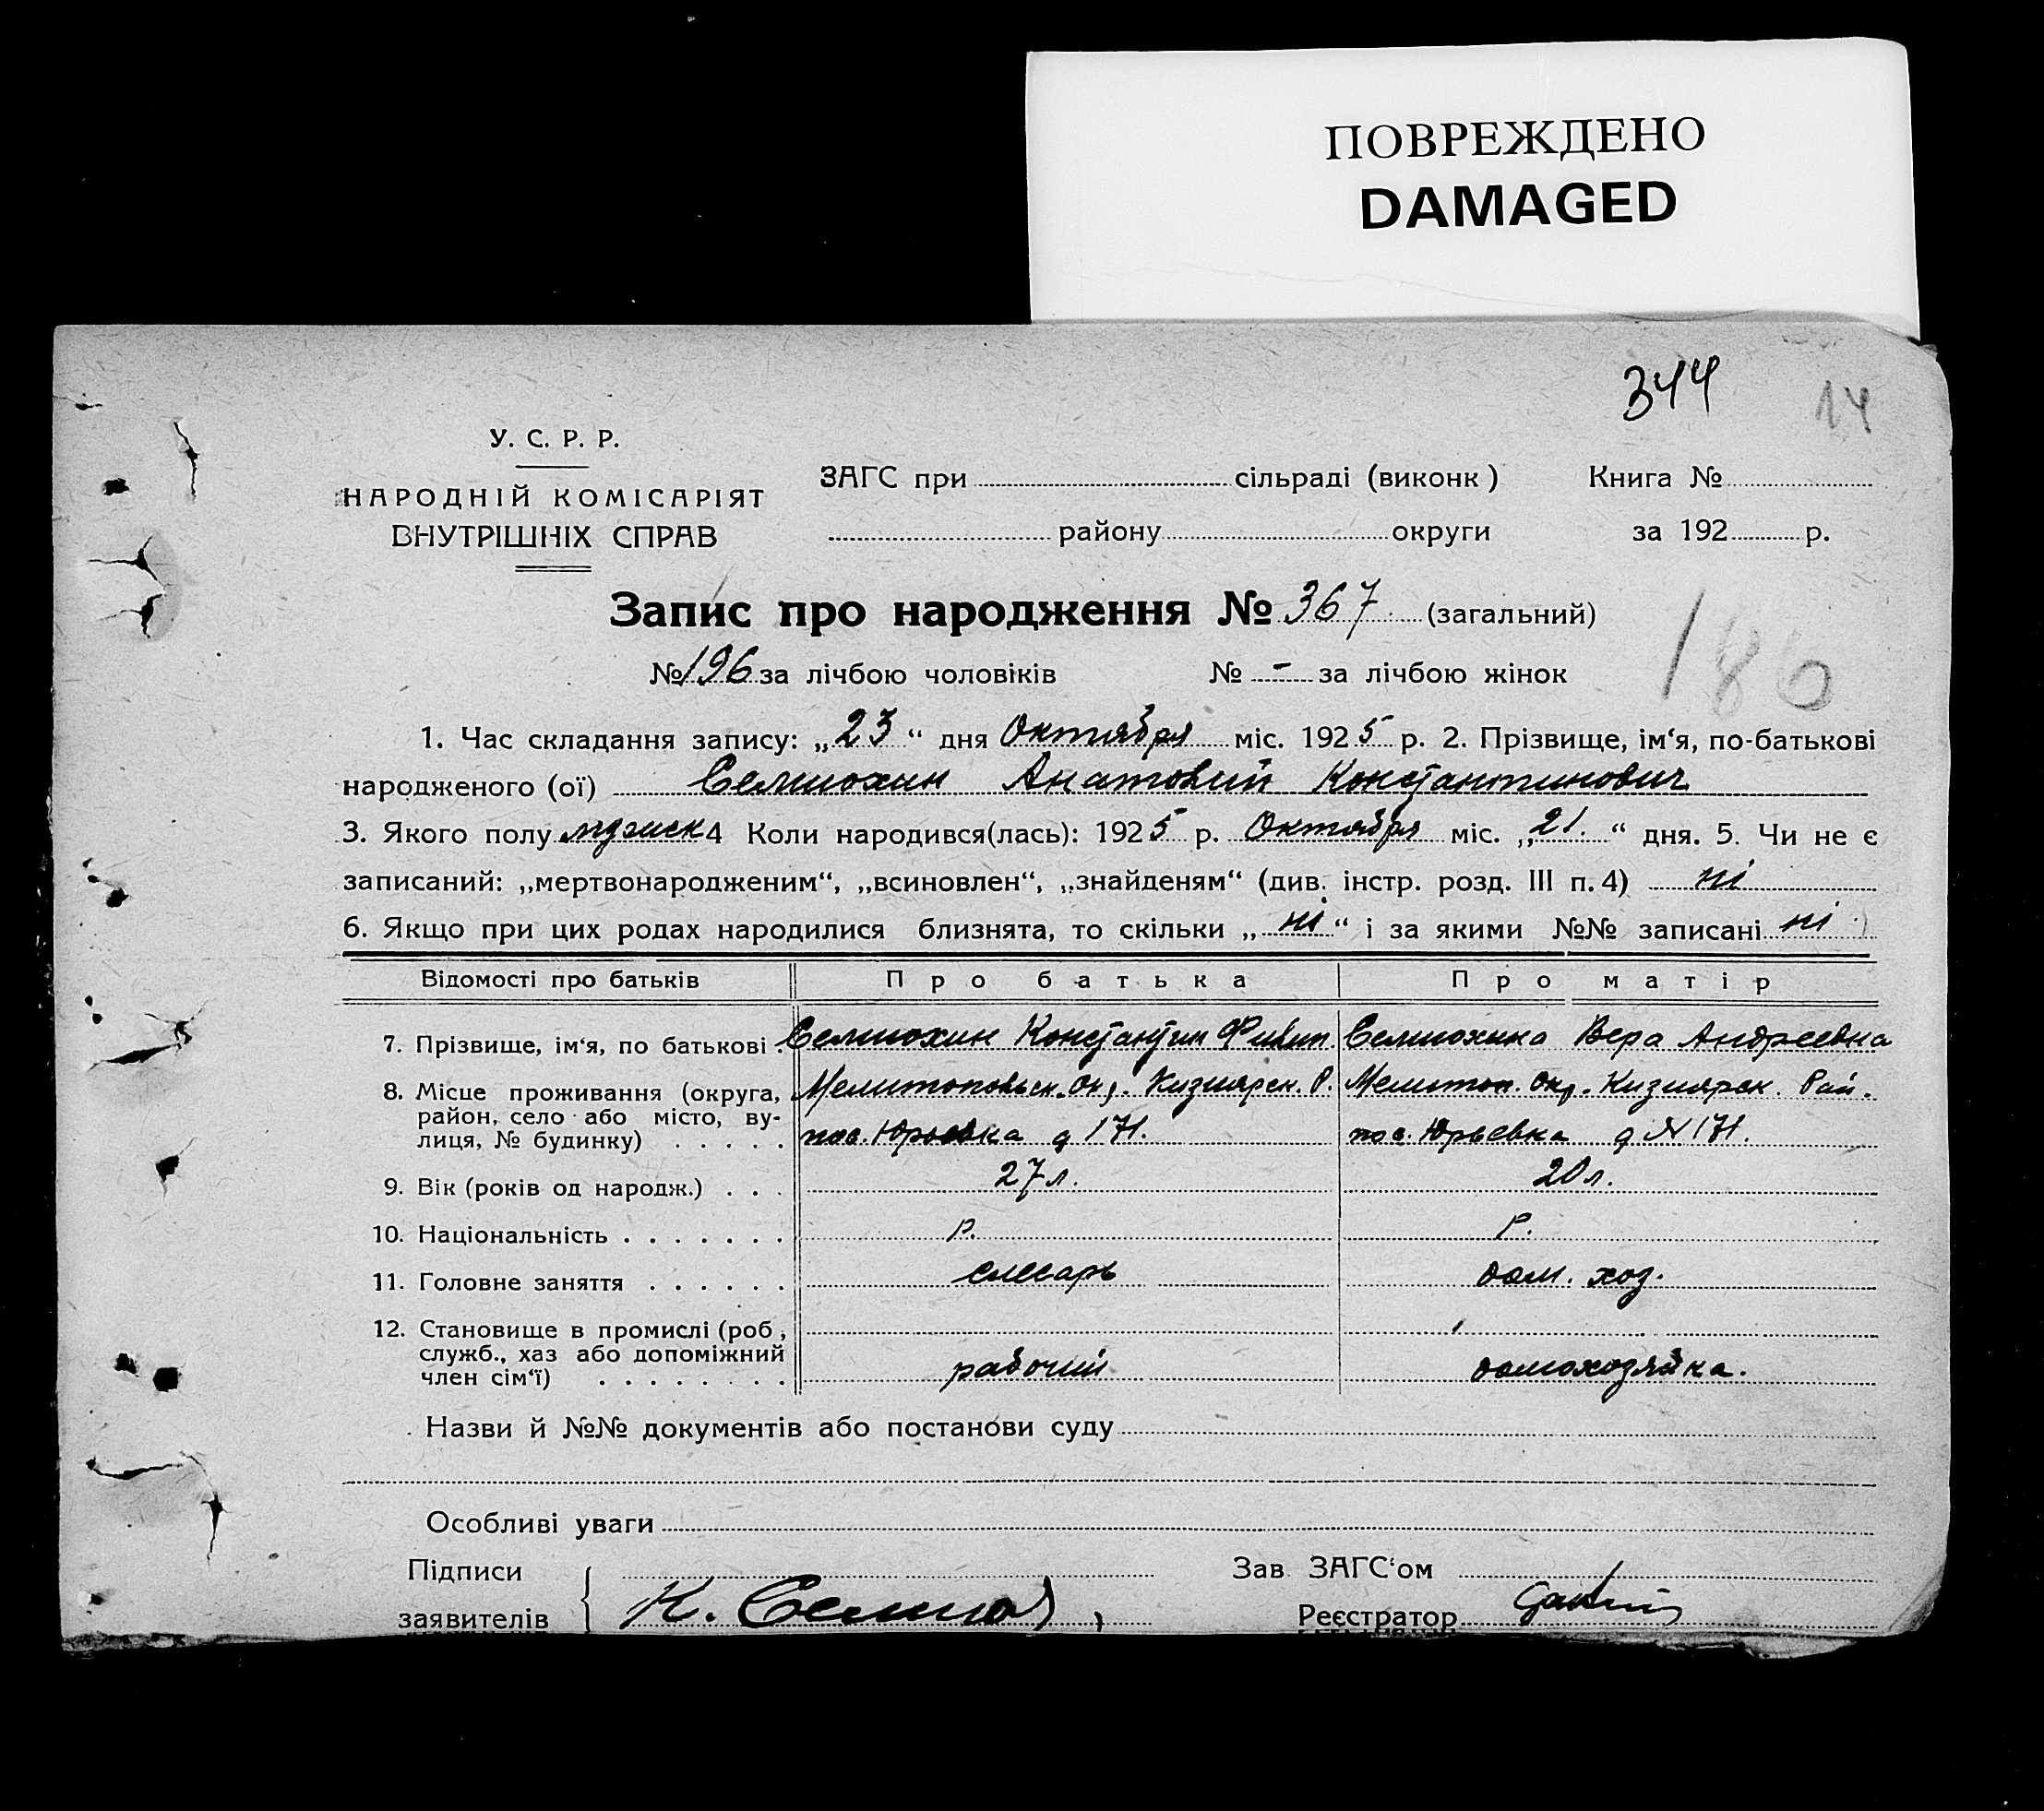 ПОВРЕЖДЕНО
DAMAGED
344
14
У. С. Р. Р.
НАРОДНІЙ КОМІСАРІЯТ
ВНУТРІШНІХ СПРАВ
ЗАГС при сільраді (виконк) Книга №
району округи за 192 р.
Запис про народження № 367 (загальний)
186
№ 196 за лічбою чоловіків № - за лічбою жінок
1. Час складання запису: „23“ дня Октября міс. 1925 р. 2. Прізвище, ім‘я, по-батькові
народженого (ої) Селиохин Анатолий Константинович
3. Якого полу мужск 4 Коли народився(лась): 1925 р. Октября міс. „21.“ дня. 5. Чи не є
записаний: „мертвонародженим“, „всиновлен“, „знайденям“ (див. інстр. розд. III п. 4) ні
6. Якщо при цих родах народилися близнята, то скільки „ні“ і за якими №№ записані ні
Відомості про батьків Про батька Про матір
7. Прізвище, ім‘я, по батькові Селиохин Константин Филип. Селиохина Вера Андреевна
8. Місце проживання (округа, Мелитопольск. Окр. Кизиярск. Р. Мелитоп. Окр. Кизиярск. Рай.
район, село або місто, ву-
лиця, № будинку) пос. Юрьевка д 171. пос. Юрьевка д N 171.
9. Вік (років од народж.) 27 л. 20 л.
10. Національність р. р.
11. Головне заняття слесарь дом. хоз.
12. Становище в промислі (роб,
служб., хаз або допоміжний
член сім‘ї) рабочий домохозяйка.
Назви й №№ документів або постанови суду
Особливі уваги
Підписи Зав ЗАГС‘ом
заявителів К. Реєстратор